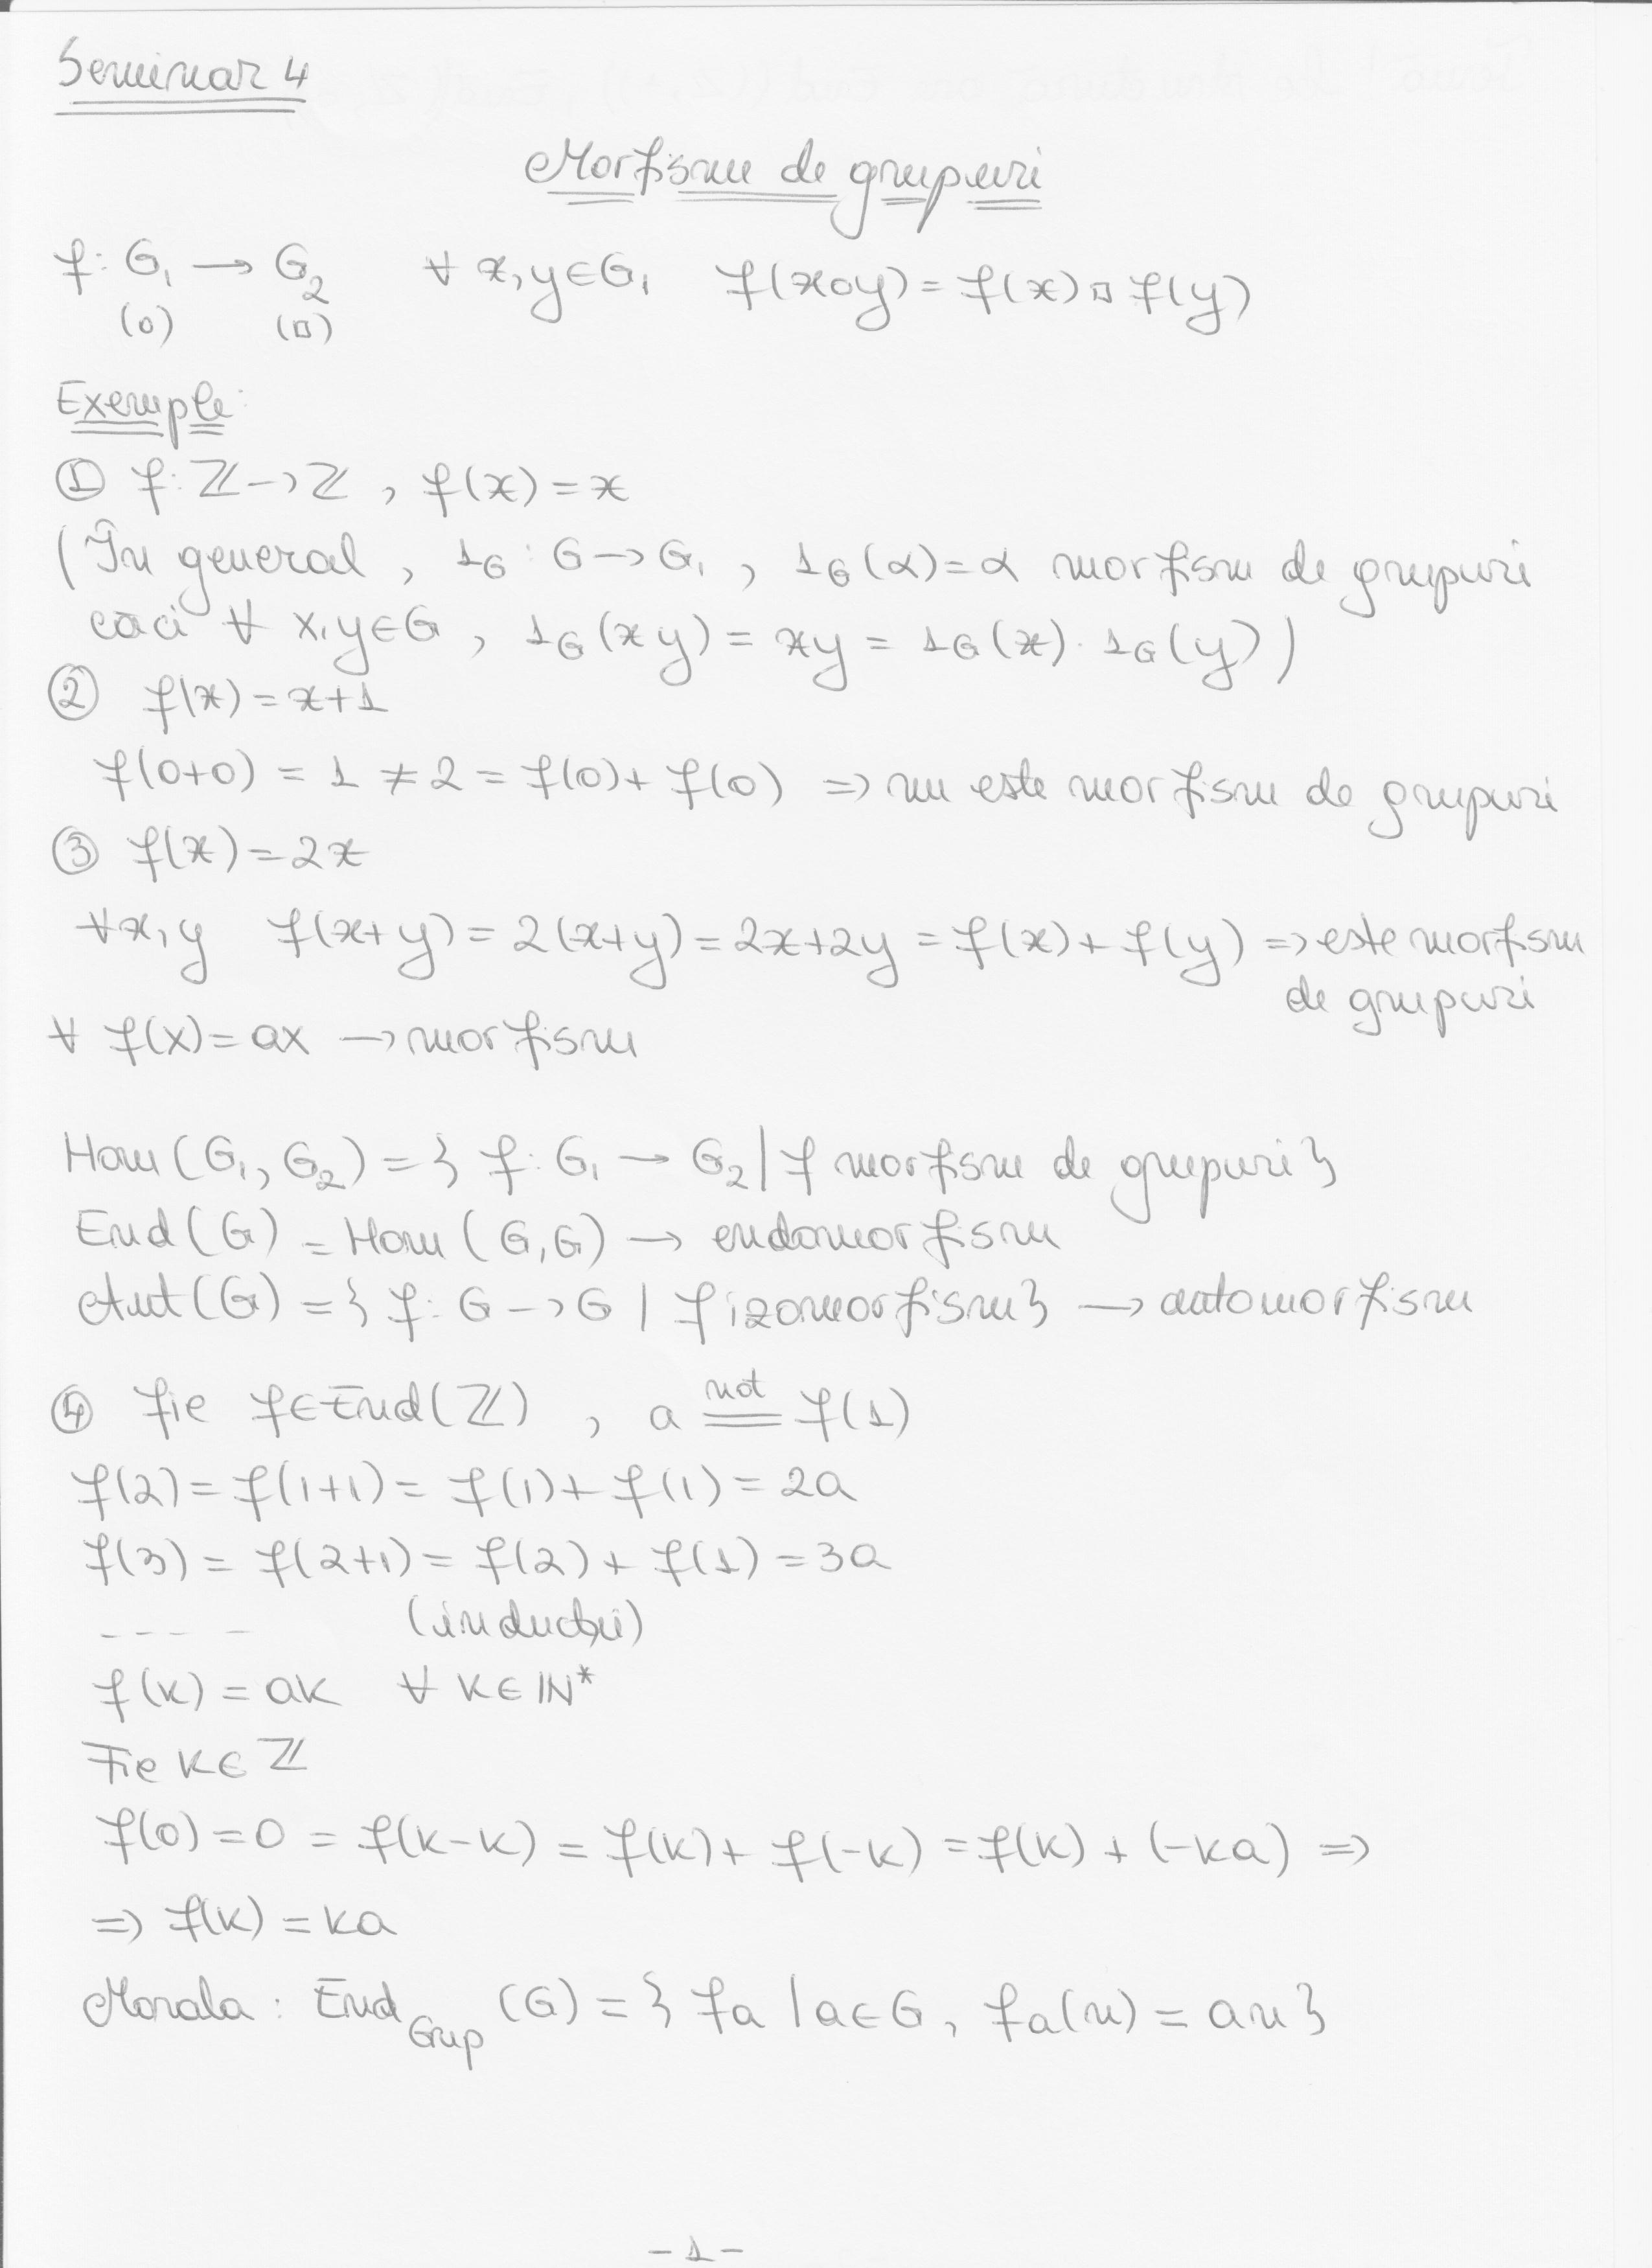 Seminar 4
Morfism de grupuri
f: G₁ → G₂ ∀ x,y∈G₁ f(x∘y) = f(x) □ f(y)
(∘) (□)
Exemple:
① f: ℤ → ℤ , f(x) = x
(În general , 1_G : G → G₁ , 1_G(α) = α morfism de grupuri
căci ∀ x,y∈G , 1_G(xy) = xy = 1_G(x) · 1_G(y))
② f(x) = x+1
f(0+0) = 1 ≠ 2 = f(0) + f(0) => nu este morfism de grupuri
③ f(x) = 2x
∀x,y f(x+y) = 2(x+y) = 2x+2y = f(x) + f(y) => este morfism
de grupuri
∀ f(x) = ax → morfism
Hom(G₁, G₂) = { f: G₁ → G₂ | f morfism de grupuri }
End(G) = Hom(G,G) → endomorfism
Aut(G) = { f: G → G | f izomorfism } → automorfism
④ fie f∈End(ℤ) , a \overset{not}{=} f(1)
f(2) = f(1+1) = f(1) + f(1) = 2a
f(3) = f(2+1) = f(2) + f(1) = 3a
---- (inducție)
f(k) = ak ∀ k∈ℕ*
Fie k∈ℤ
f(0) = 0 = f(k-k) = f(k) + f(-k) = f(k) + (-ka) =>
=> f(k) = ka
Morala : End_Grup (G) = { f_a | a∈G, f_a(n) = an }
- 1 -